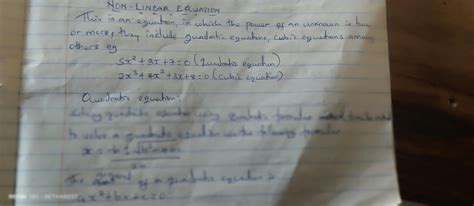 NON-LINEAR EQUATION
This is an equation, in which the power of an unknown is two
or more, they include quadratic equations, cubic equations among
others eg
5x² + 3x + 7 = 0 (Quadratic equation)
2x³ + 7x² + 3x + 8 = 0 (Cubic equation)
Quadratic equation:
Solving quadratic equation using quadratic formulae
to solve a quadratic equation use the following formulae
x = -b ± √b²
The of a quadratic equation is
x² + bx + c = 0